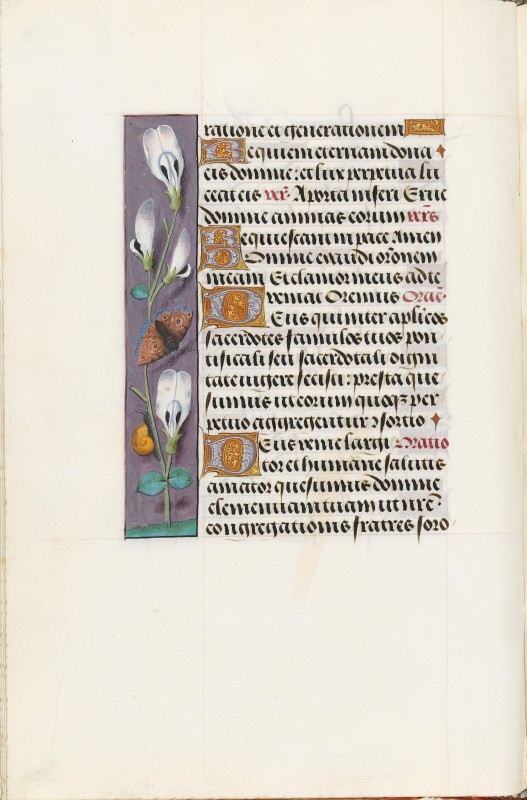 ratione et generationem
Requiem eternam dona
eis domine: et lux perpetua lu
ceat eis ver͛. A porta inferi Erue
domine animas eorum vers
Requiescant in pace Amen
Domine exaudi orōnem
meam Et clamor meus ad te
veniat Oremus Oraō.
Deus qui inter aplicos
sacerdotes famulos tuos pon
tificali seu sacerdotali digni
tate vigere fecisti: presta que
sumus ut eorum quoqȝ per
petuo aggregentur ɔsortio
Deus venie largi Oratio
tor et humane salutis
amator quesumus domine
clementiam tuam ut nr̄e
congregationis fratres soro